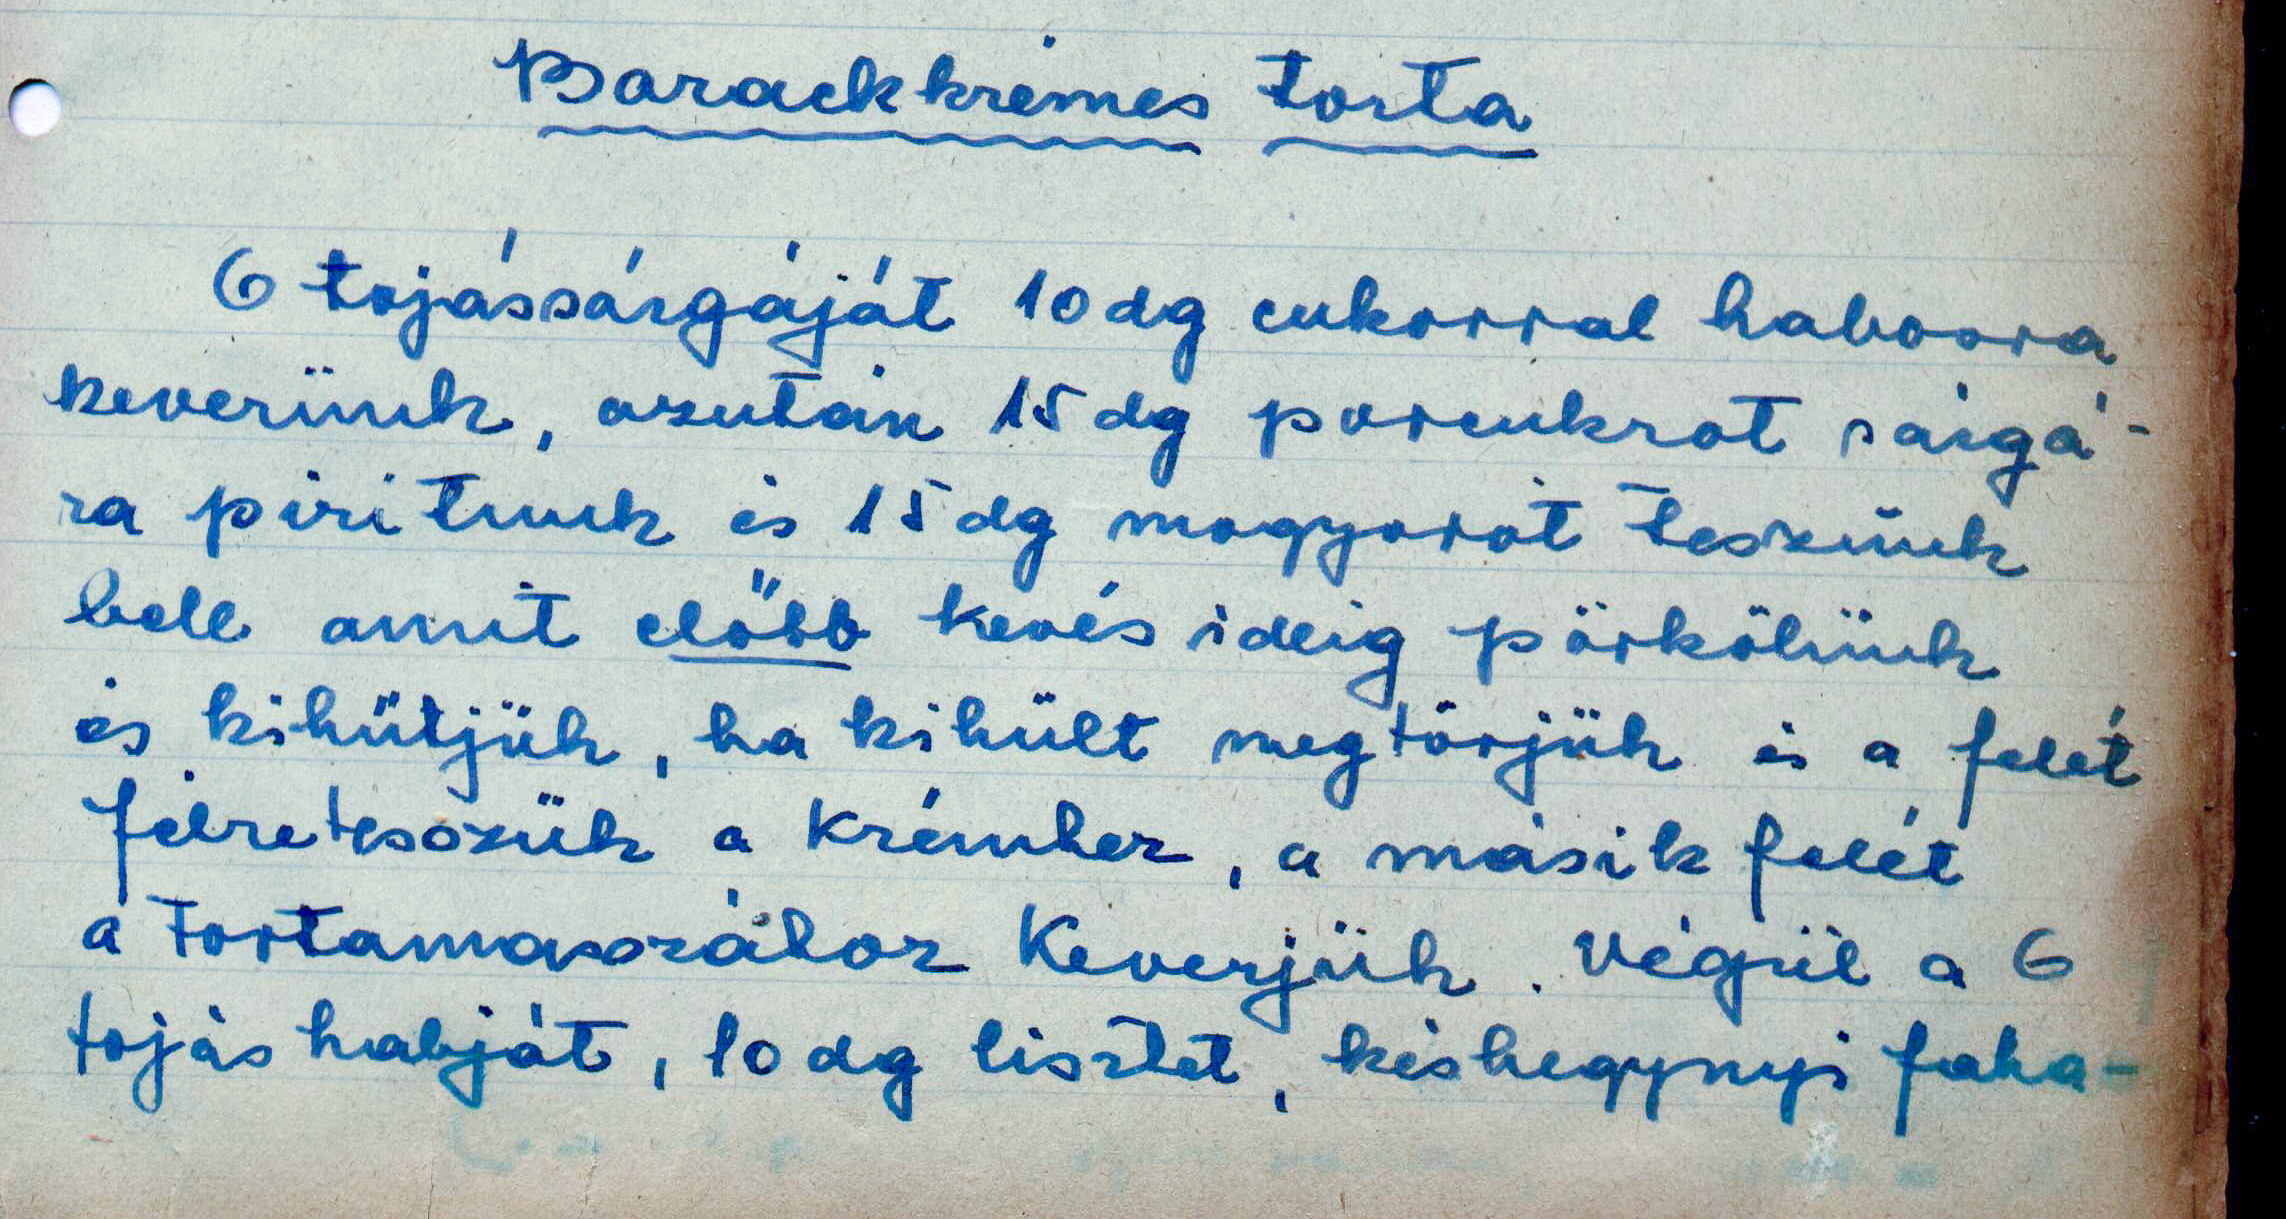 Barackkrémes torta
6 tojássárgáját 10 dg cukorral habosra
keverünk, azután 15 dg porcukrot sárgá-
ra piritunk és 15 dg mogyorót teszünk
bele amit előbb kevés ideig pörkölünk
és kihűtjük, ha kihült megtörjük és a felét
félretesszük a krémhez, a másik felét
a tortamasszához keverjük. Végül a 6
tojás habját, 10 dg lisztet, késhegynyi faha-